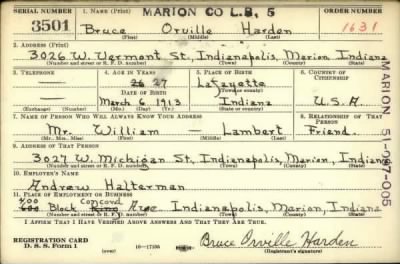 SERIAL NUMBER 1. NAME (Print) MARION CO L.B. 5 ORDER NUMBER
3501 Bruce Orville Harden 1631
(First) (Middle) (Last)
2. ADDRESS (Print)
3026 W. Vermont St, Indianapolis, Marion, Indiana
(Number and street or R. F. D. number) (Town) (County) (State)
3. TELEPHONE 4. AGE IN YEARS 5. PLACE OF BIRTH 6. COUNTRY OF CITIZENSHIP
26 27 Lafayette
DATE OF BIRTH
March 6 1913 Indiana U.S.A.
(Exchange) (Number) (Mo.) (Day) (Yr.) (State or country)
7. NAME OF PERSON WHO WILL ALWAYS KNOW YOUR ADDRESS 8. RELATIONSHIP OF THAT PERSON
Mr. William — Lambert Friend.
(Mr., Mrs., Miss) (First) (Middle) (Last)
9. ADDRESS OF THAT PERSON
3027 W. Michigan St, Indianapolis, Marion, Indiana
(Number and street or R. F. D. number) (Town) (County) (State)
10. EMPLOYER'S NAME
Andrew Halterman
11. PLACE OF EMPLOYMENT OR BUSINESS
400 Concord
Block Ave Indianapolis, Marion, Indiana
(Number and street or R. F. D. number) (Town) (County) (State)
I AFFIRM THAT I HAVE VERIFIED ABOVE ANSWERS AND THAT THEY ARE TRUE.
REGISTRATION CARD
D. S. S. Form 1 (over) 16-17105 Bruce Orville Harden
(Registrant's signature)
MARION 51-097-005